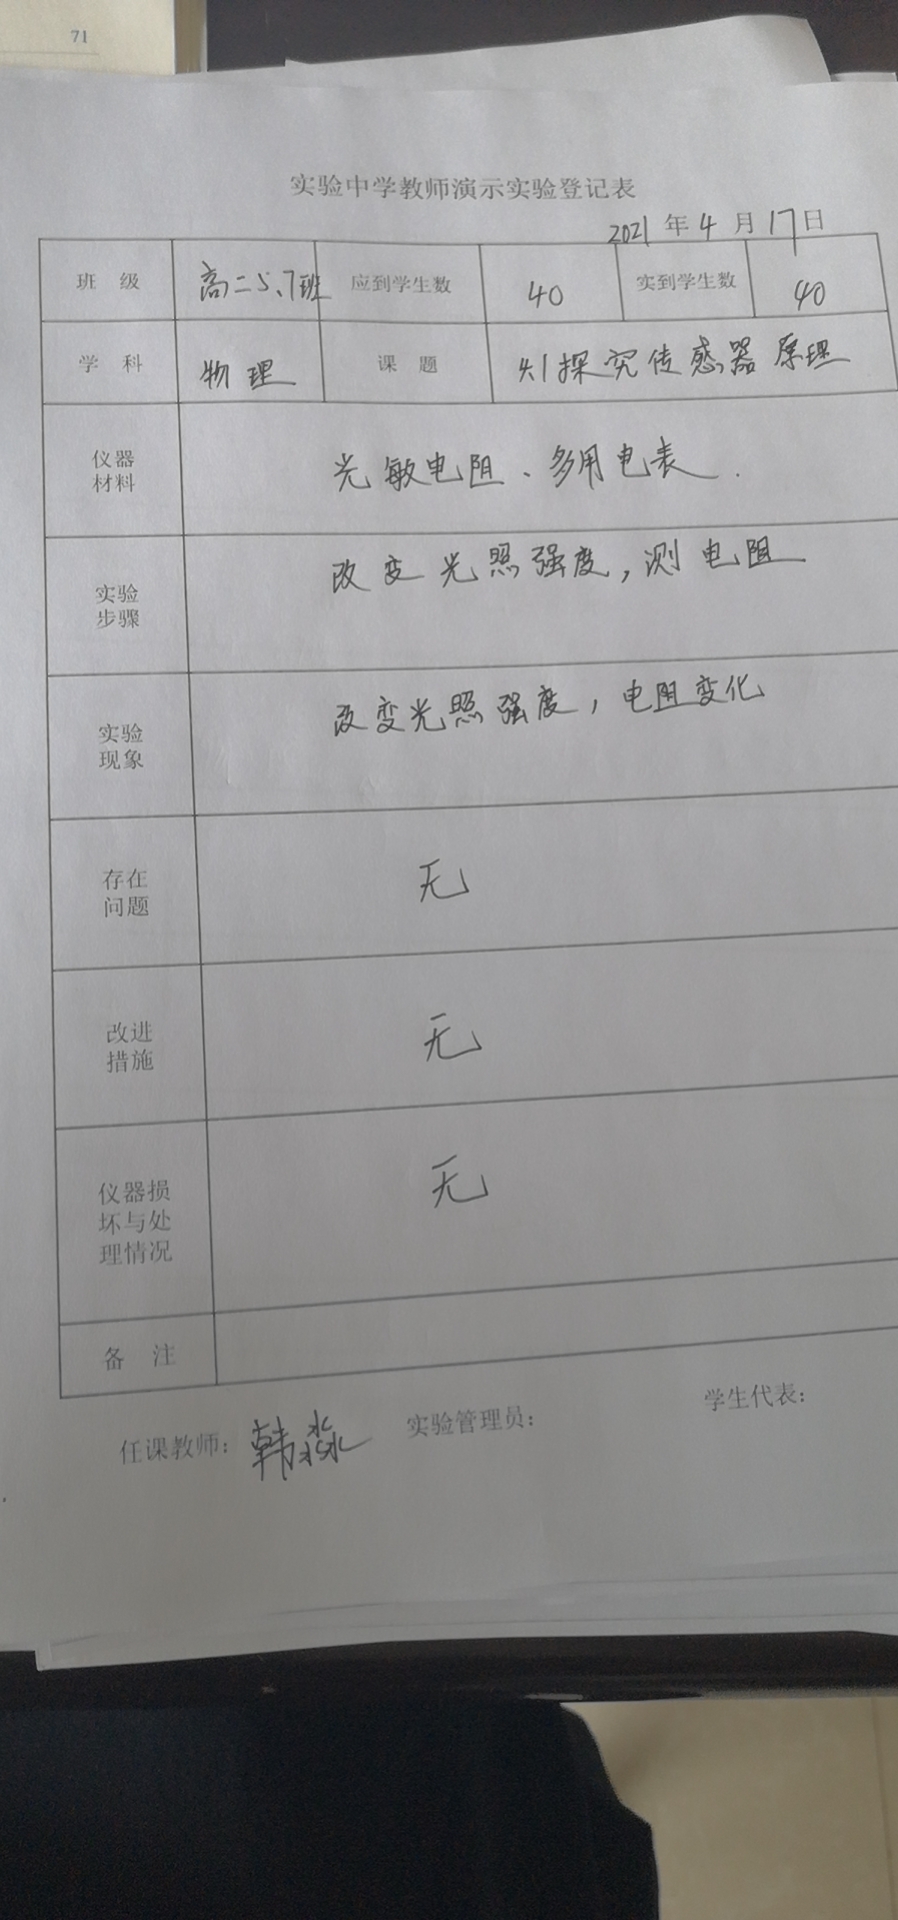 71
实验中学教师演示实验登记表
2021年4月17日
班 级 高二5、7班 应到学生数 40 实到学生数 40
学 科 物理 课 题 探究传感器原理
仪器
材料
光敏电阻、多用电表.
实验
步骤
改变光照强度,测电阻
实验
现象
改变光照强度,电阻变化
存在
问题
无
改进
措施
无
仪器损
坏与处
理情况
无
备 注
任课教师:韩淼 实验管理员: 学生代表: